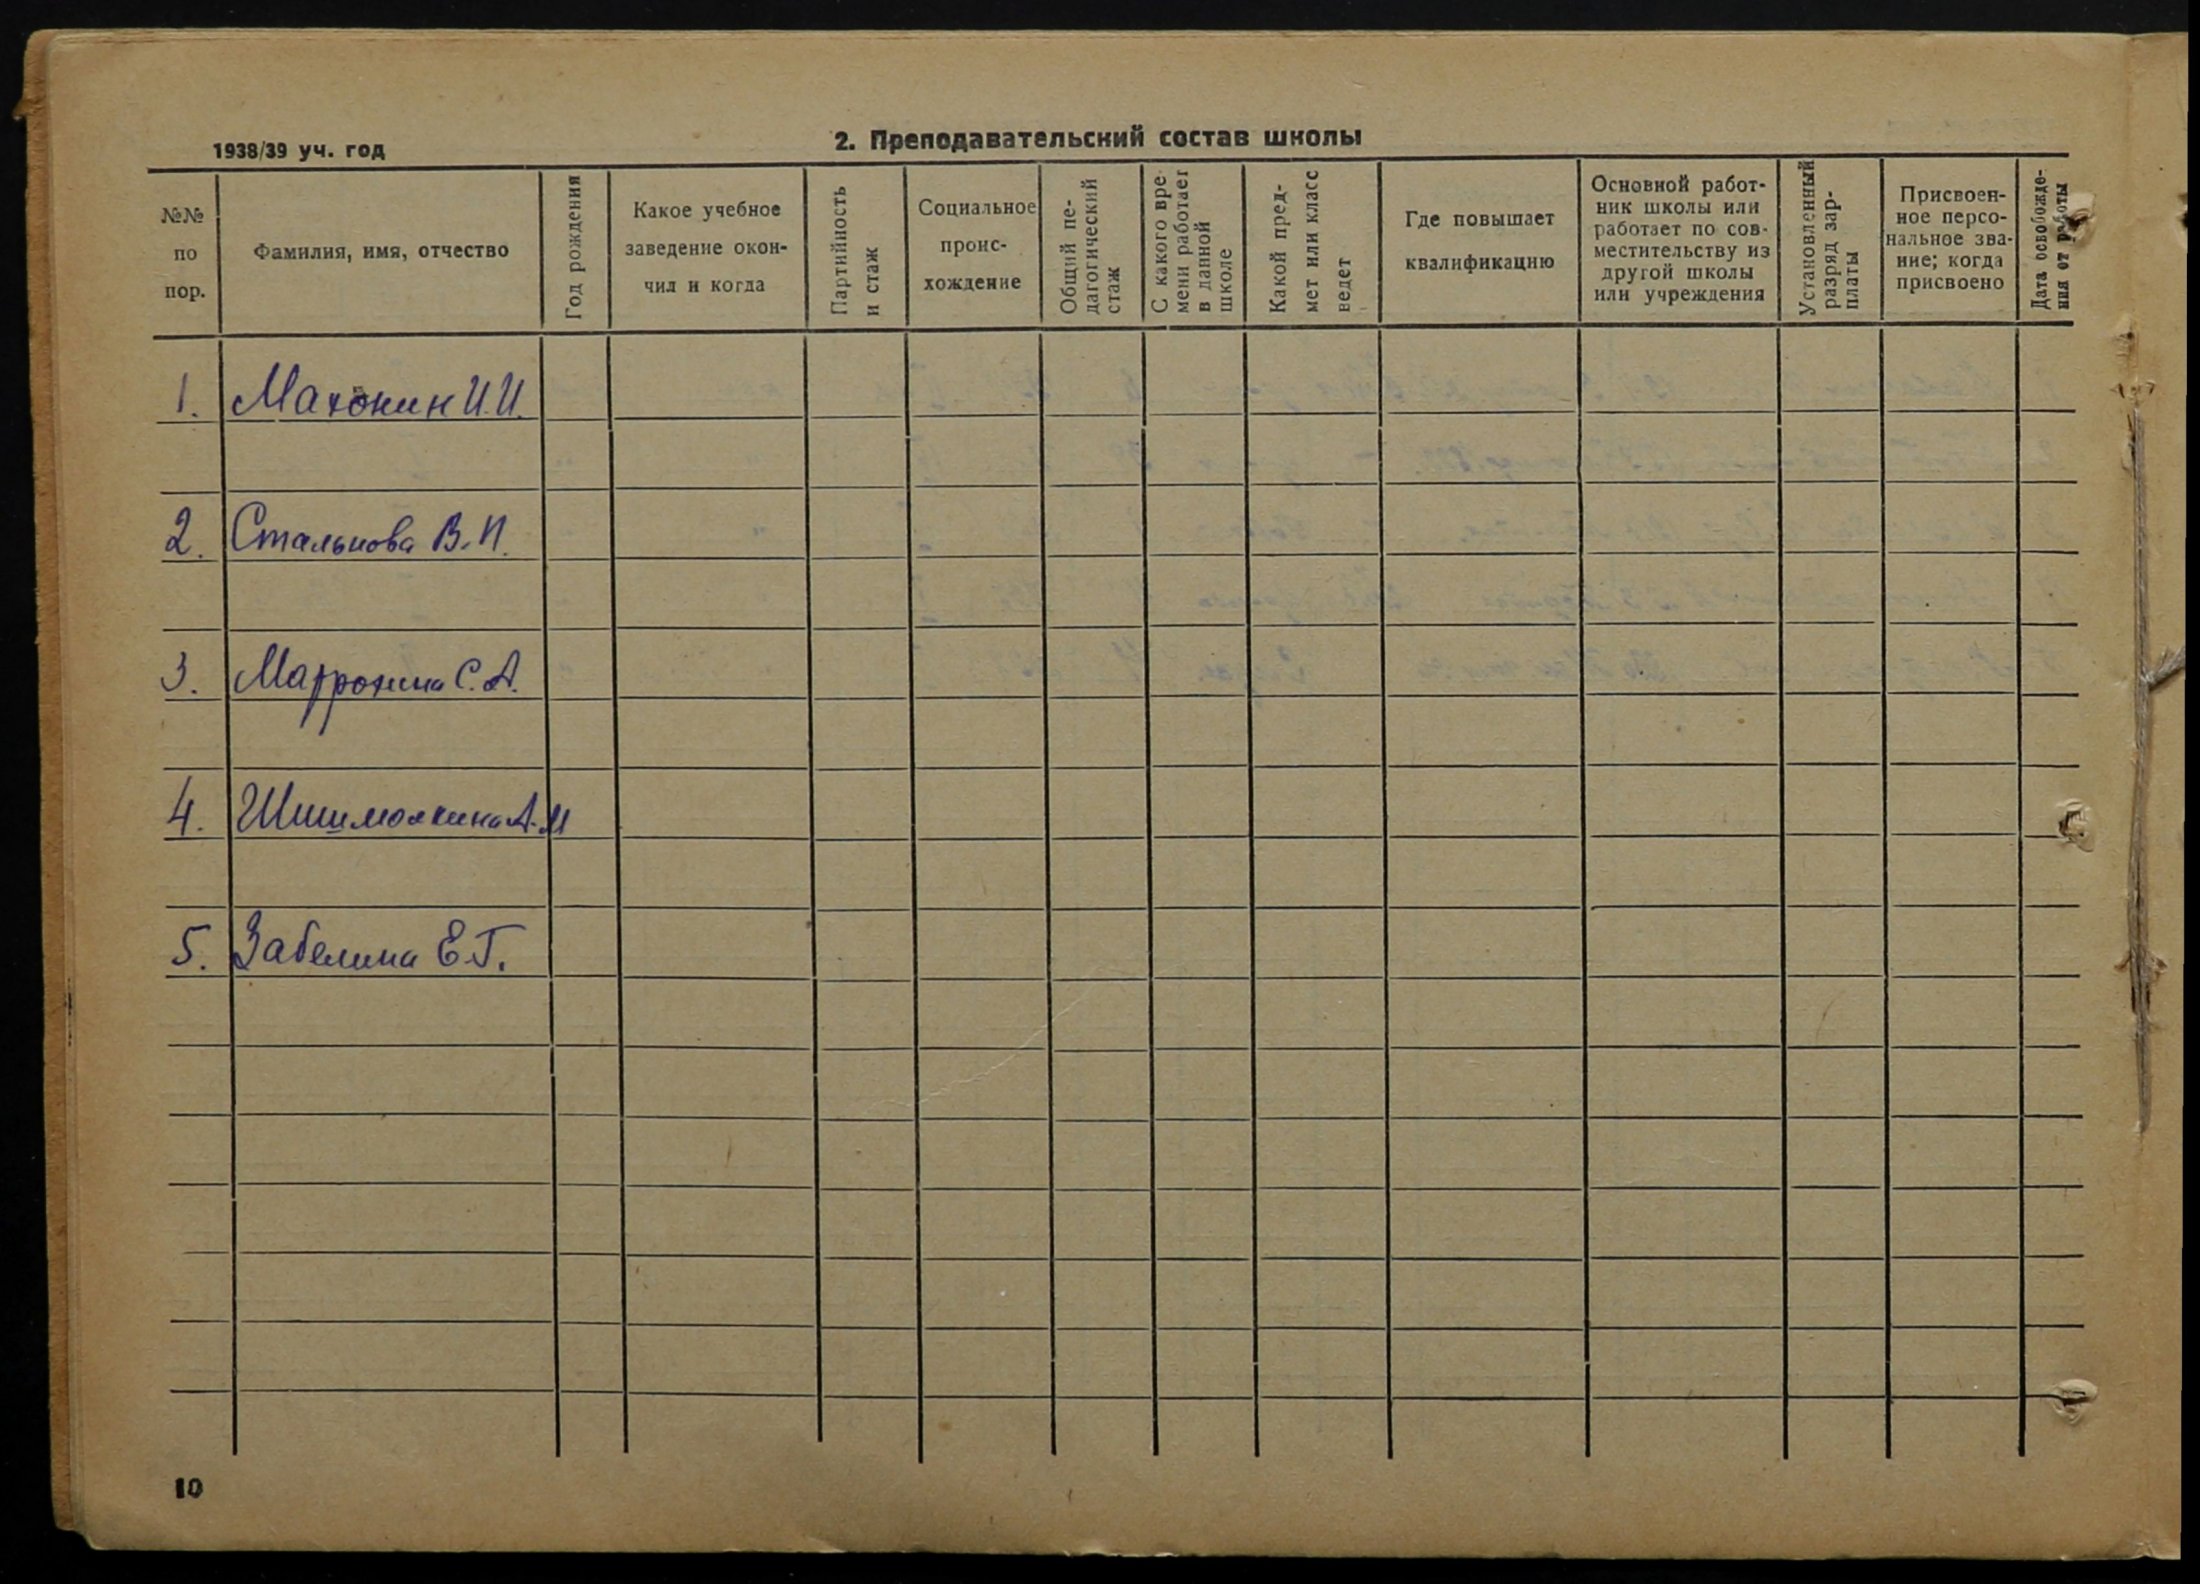 1938/39 уч. год
2. Преподавательский состав школы
№№
по
пор.
Фамилия, имя, отчество
Год рождения
Какое учебное
заведение окон-
чил и когда
Партийность
и стаж
Социальное
проис-
хождение
Общий пе-
дагогический
стаж
С какого вре-
мени работает
в данной
школе
Какой пред-
мет или класс
ведет
Где повышает
квалификацию
Основной работ-
ник школы или
работает по сов-
местительству из
другой школы
или учреждения
Установленный
разряд зар-
платы
Присвоен-
ное персо-
нальное зва-
ние; когда
присвоено
Дата освобожде-
ния от работы
1. Махонин И.И.
2. Стальнова В.П.
3. С.А.
4. А.М
5. Забелина Е.Г.
10